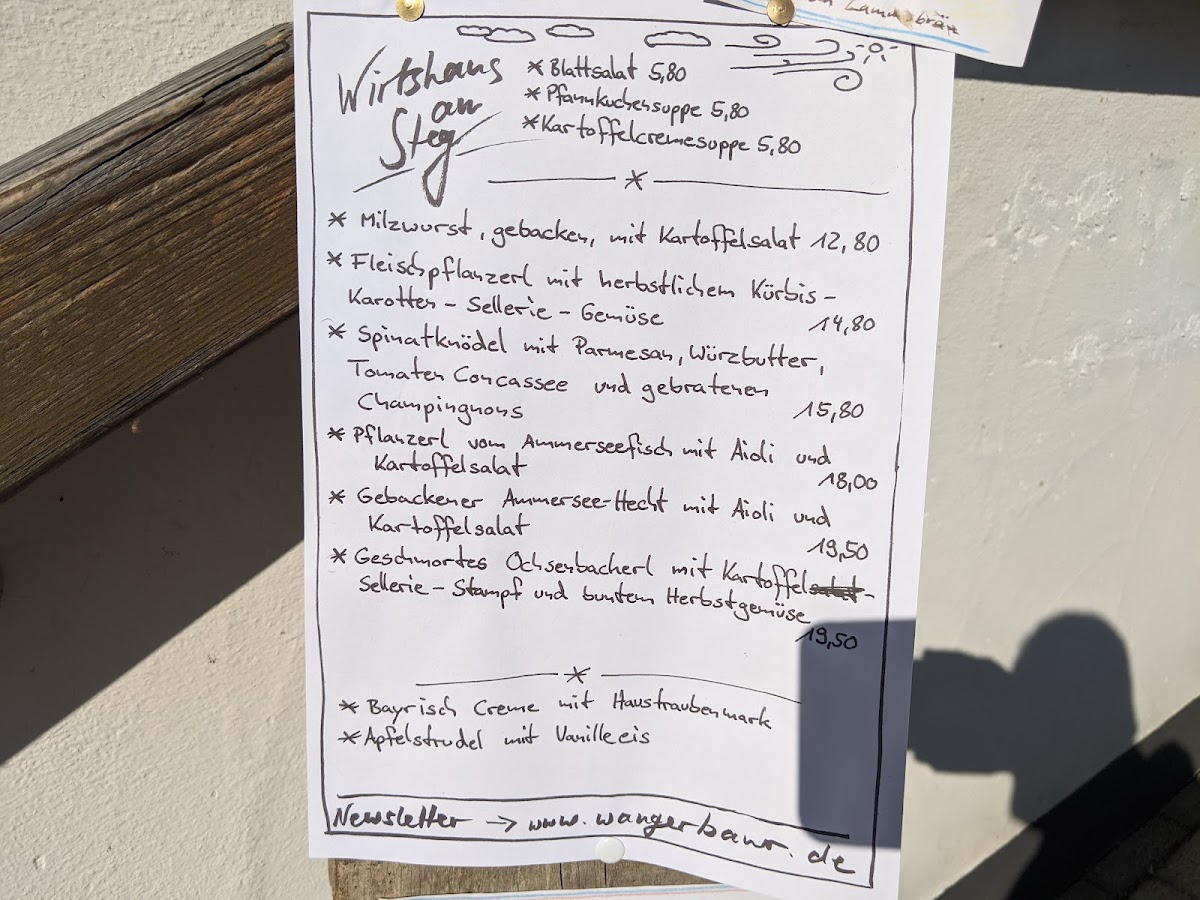 Wirtshaus
am
Steg
* Blattsalat 5,80
* Pfannkuchensuppe 5,80
* Kartoffelcremesuppe 5,80
* Milzwurst, gebacken, mit Kartoffelsalat 12,80
* Fleischpflanzerl mit herbstlichem Kürbis-
Karotten-Sellerie-Gemüse
14,80
* Spinatknödel mit Parmesan, Würzbutter,
Tomaten Concassee und gebratenen
Champingnons 15,80
* Pflanzerl vom Ammerseefisch mit Aioli und
Kartoffelsalat 18,00
* Gebackener Ammersee-Hecht mit Aioli und
Kartoffelsalat 19,50
* Geschmortes Ochsenbacherl mit Kartoffelsalat-
Sellerie-Stampf und buntem Herbstgemüse
19,50
* Bayrisch Creme mit Haustraubenmark
* Apfelstrudel mit Vanilleeis
Newsletter → www.wangerbaur.de